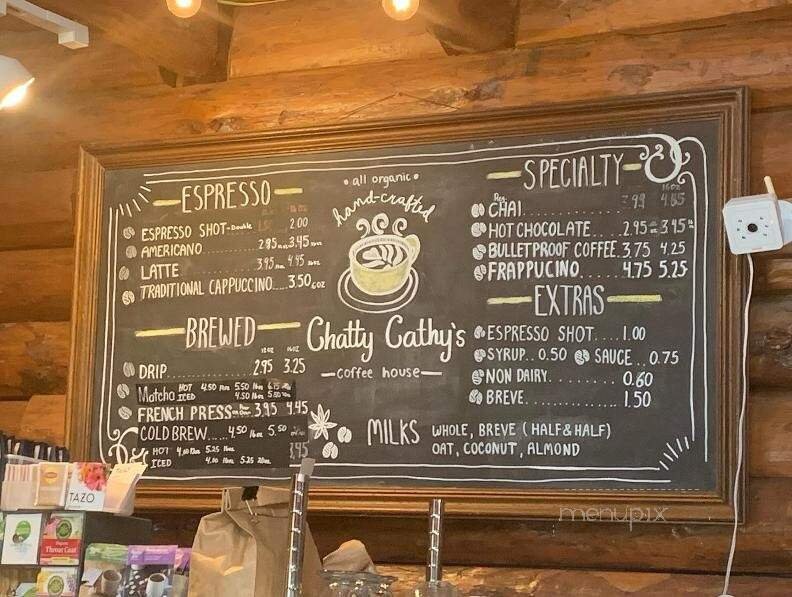 ESPRESSO
ESPRESSO SHOT-Double 2.00
AMERICANO 2.95 3.45
LATTE 3.95 4.45
TRADITIONAL CAPPUCCINO....3.50 6oz
BREWED
12oz 16oz
DRIP 2.95 3.25
Matcha HOT 4.50 12oz 5.50 16oz 6.15
ICED 4.50 16oz 5.50
FRENCH PRESS 3.95 4.45
COLD BREW 4.50 16oz 5.50
HOT 4.00 12oz 5.25 16oz
ICED 4.00 16oz 5.25 20oz
3.95
• all organic •
hand-crafted
Chatty Cathy's
coffee house
SPECIALTY
16oz
CHAI 4.85
HOT CHOCOLATE 2.95 3.45
BULLETPROOF COFFEE. 3.75 4.25
FRAPPUCINO 4.75 5.25
EXTRAS
ESPRESSO SHOT....1.00
SYRUP..0.50 SAUCE...0.75
NON DAIRY 0.60
BREVE 1.50
MILKS WHOLE, BREVE (HALF & HALF)
OAT, COCONUT, ALMOND
TAZO
Throat Coat
menupix